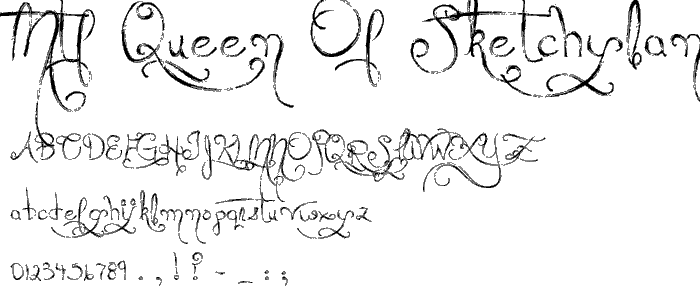 Mtf Queen Of Sketchylan
ABCDEFGHIJKLMNOPQRSTUVWXYZ
abcdefghijklmnopqrstuvwxyz
0123456789 . , ! ? - _ : ;